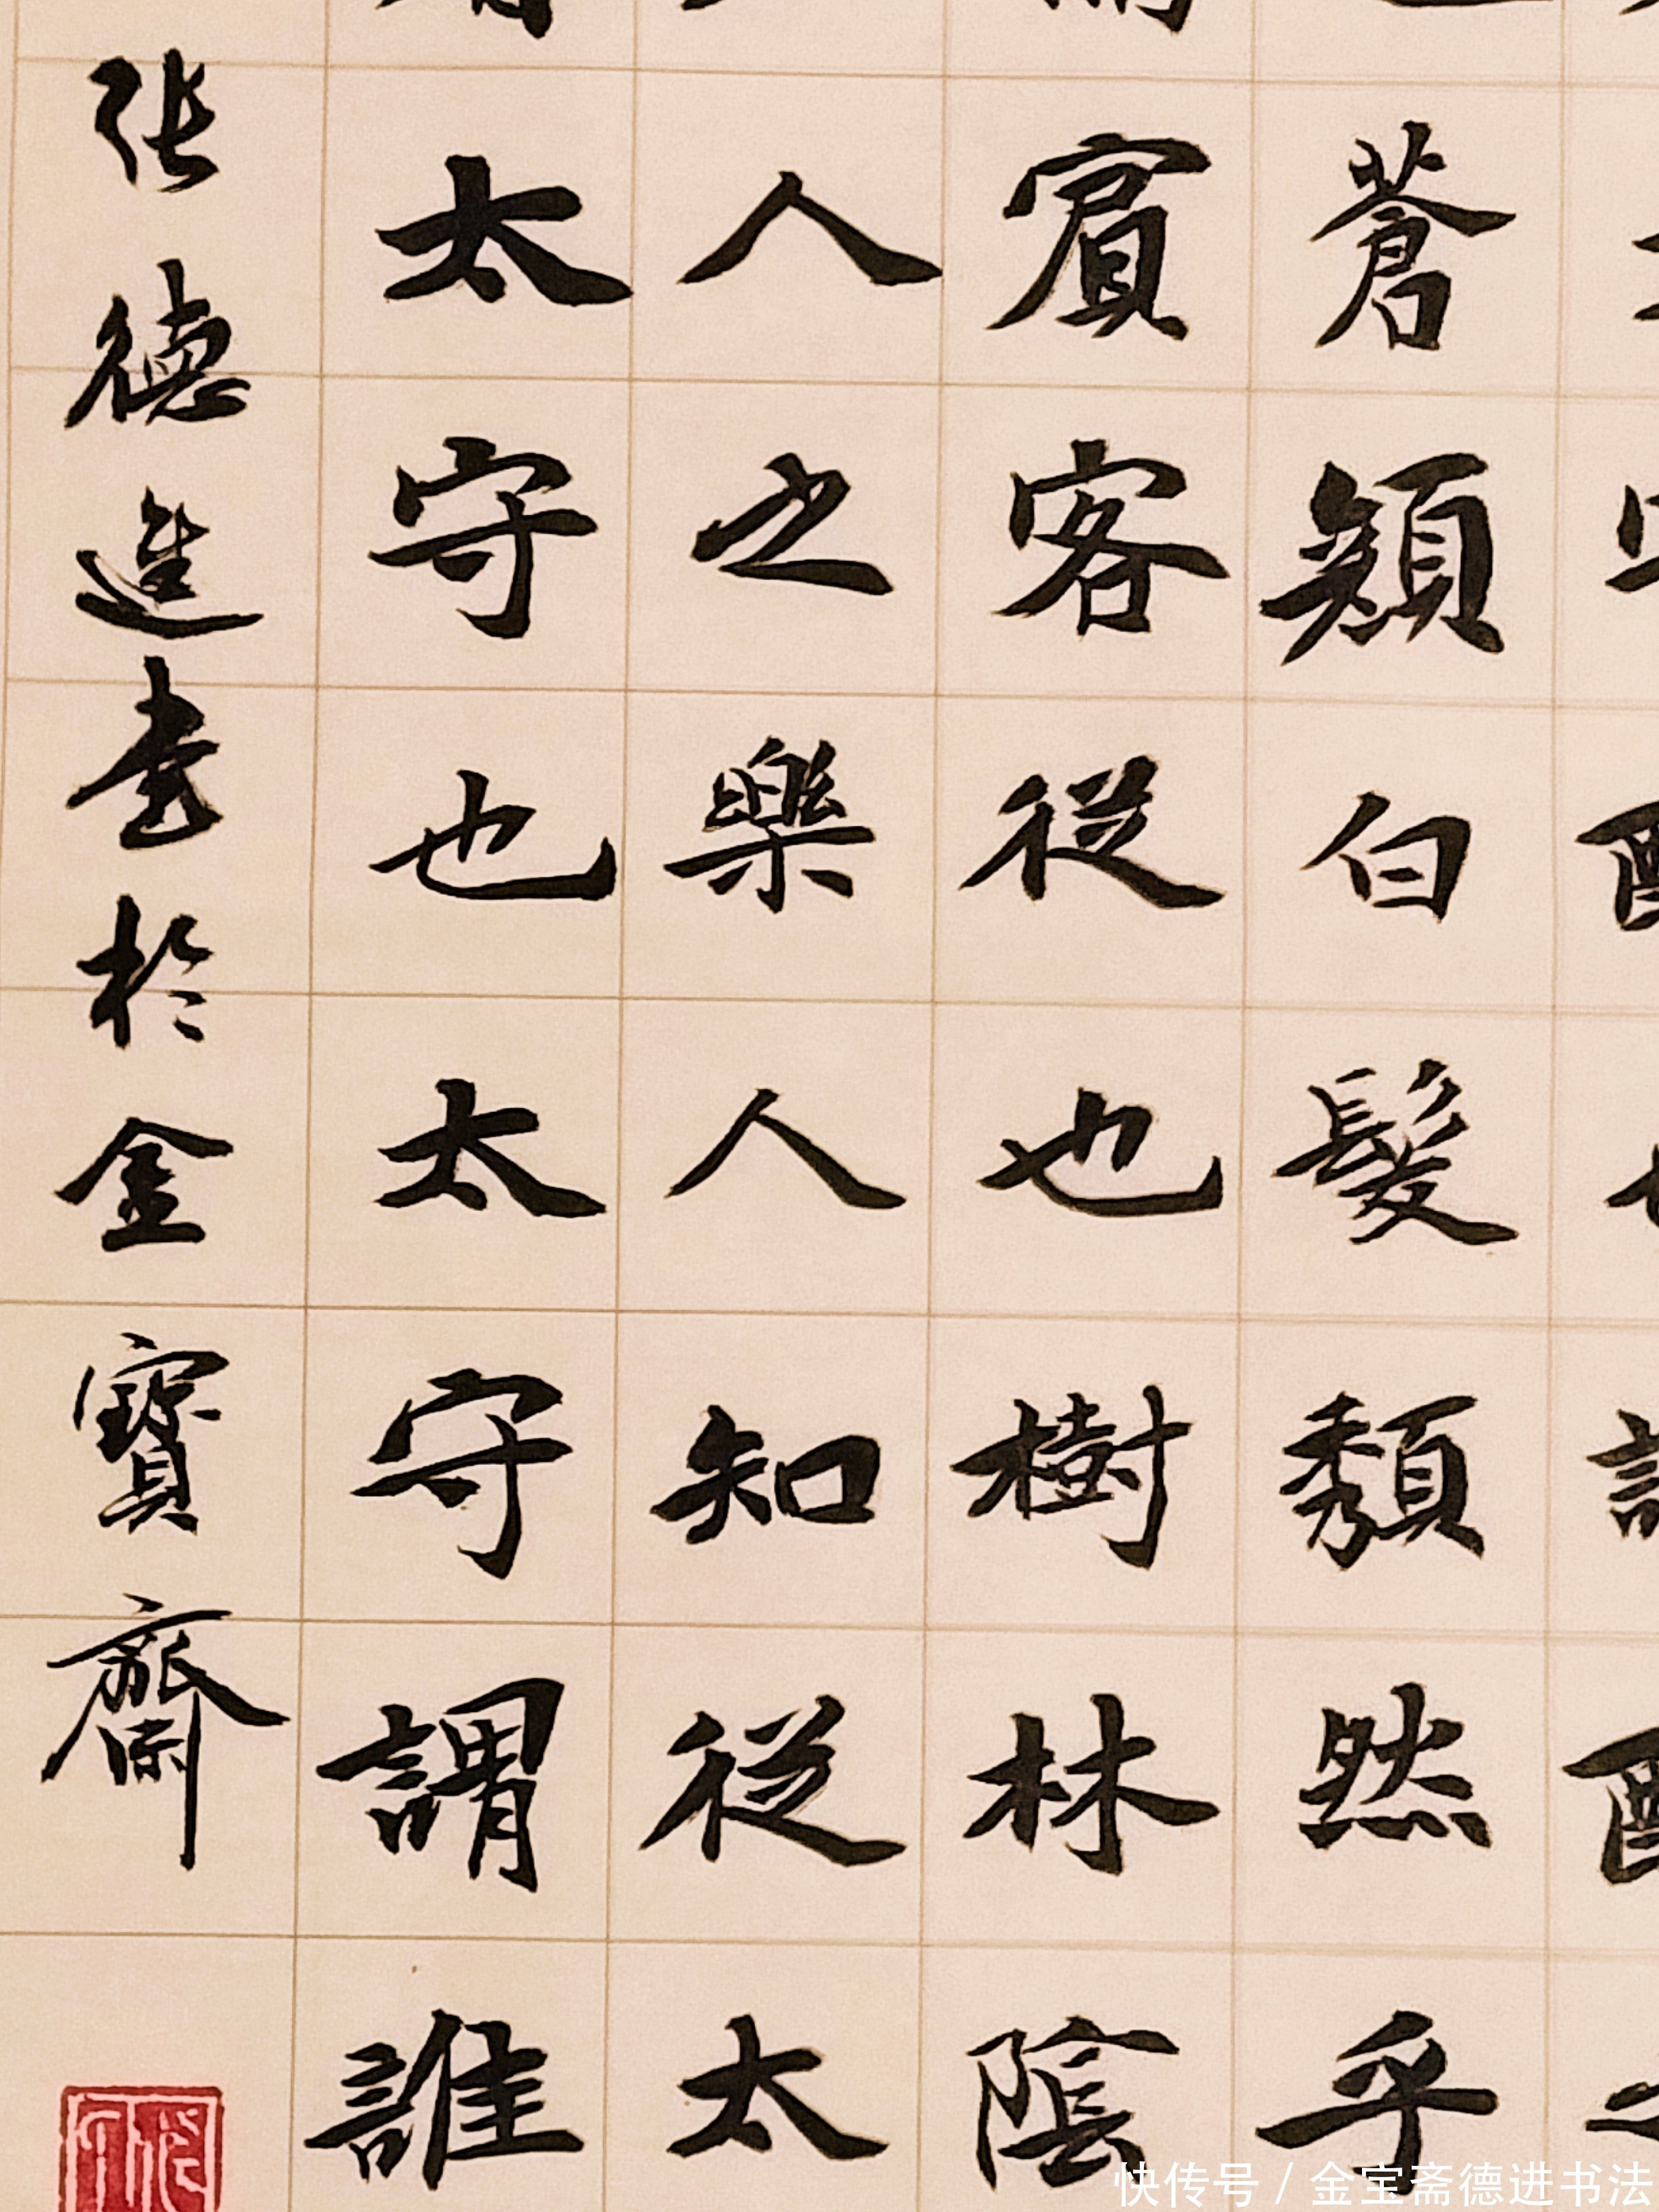 蒼顏白髮頹然乎
賓客從也樹林陰
人之樂人知從太
太守也太守謂誰
张德進书於金寶齋
快传号 / 金宝斋德进书法